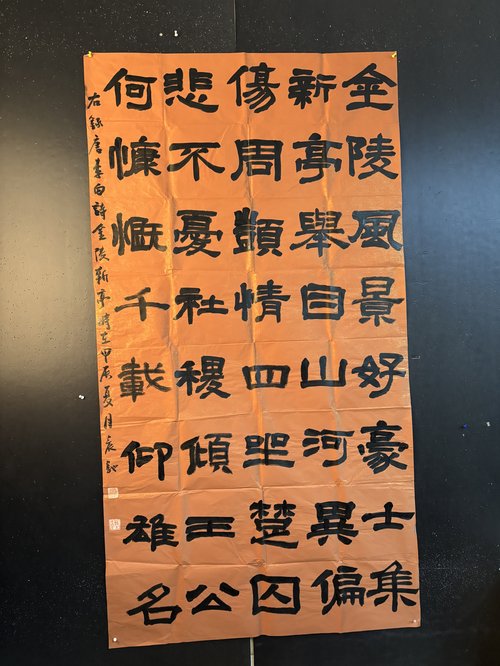 金陵風景好豪士集
新亭舉目山河異偏
傷周顗情四坐楚囚
悲不憂社稷傾王公
何慷慨千載仰雄名
右録唐李白詩金陵新亭時在甲辰夏月